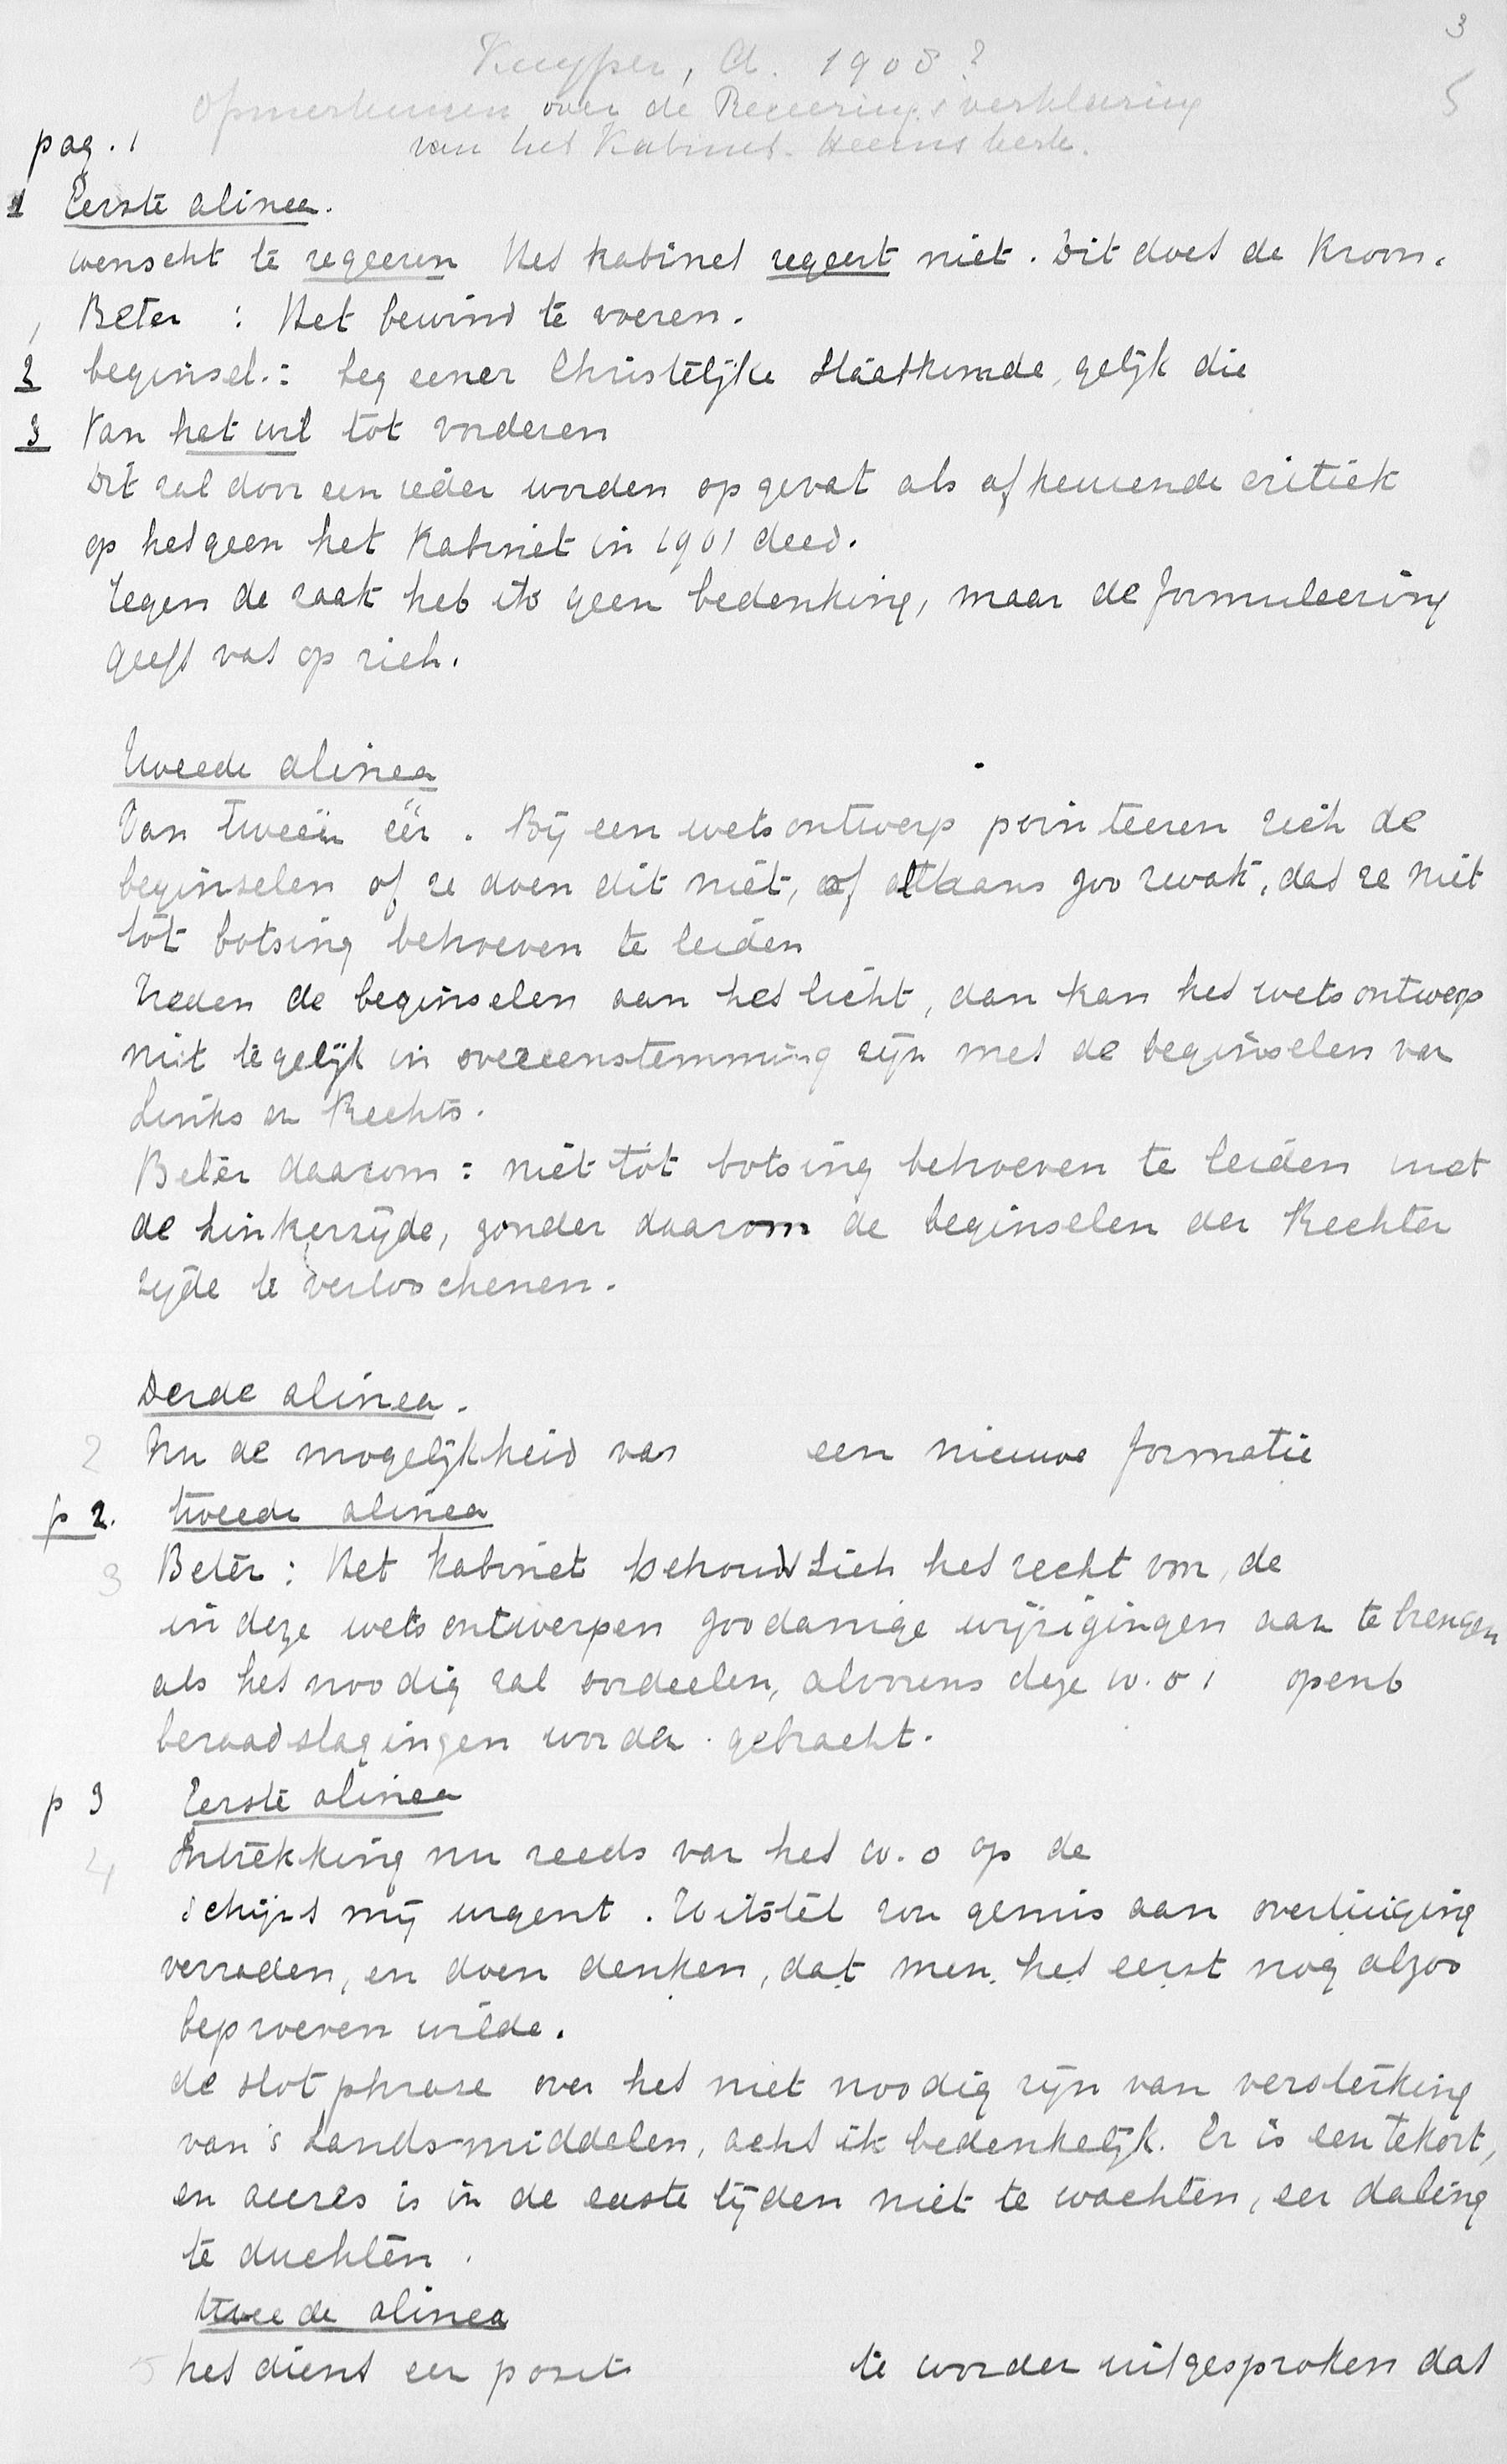 3
Kuyper, A. 1908?
Opmerkingen over de Regeeringsverklaring
5
van het Kabinet-Heemskerk.
pag. 1
1 Eerste alinea.
wenscht te regeeren Het kabinet regeert niet. Dit doet de Kroon.
Beter : Het bewind te voeren.
2 beginsel.: Leg eener Christelijke Staatkunde, gelijk die
3 Van het wil tot vorderen
Dit zal door een ieder worden opgevat als afkeurende critiek
op hetgeen het Kabinet in 1901 deed.
Tegen de zaak heb ik geen bedenking, maar de formuleering
geeft vat op zich.
Tweede alinea
Van tweeën één. Bij een wetsontwerp pointeeren zich de
beginselen of ze doen dit niet, of althans zoo zwak, dat ze niet
tot botsing behoeven te leiden
Treden de beginselen aan het licht, dan kan het wetsontwerp
niet tegelijk in overeenstemming zijn met de beginselen van
Links en Rechts.
Beter daarom : niet tot botsing behoeven te leiden met
de Linkerzijde, zonder daarom de beginselen der Rechter
zijde te verloochenen.
Derde alinea.
2 Nu de mogelijkheid van een nieuwe formatie
p 2. tweede alinea
3 Beter : Het Kabinet behoudt zich het recht voor, de
in deze wetsontwerpen zoodanige wijzigingen aan te brengen
als het noodig zal oordeelen, alvorens deze w.o. openb
beraadslagingen worden gebracht.
p 3 Eerste alinea
4 Intrekking nu reeds van het w.o op de
schijnt mij urgent. Uitstel zou gemis aan overtuiging
verraden, en doen denken, dat men het eerst nog alzoo
beproeven wilde.
de slotphrase over het niet noodig zijn van versterking
van 's Lands middelen, acht ik bedenkelijk. Er is een tekort,
en accres is in de eerste tijden niet te wachten, eer daling
te duchten.
tweede alinea
5 het dient een posit te worden uitgesproken dat